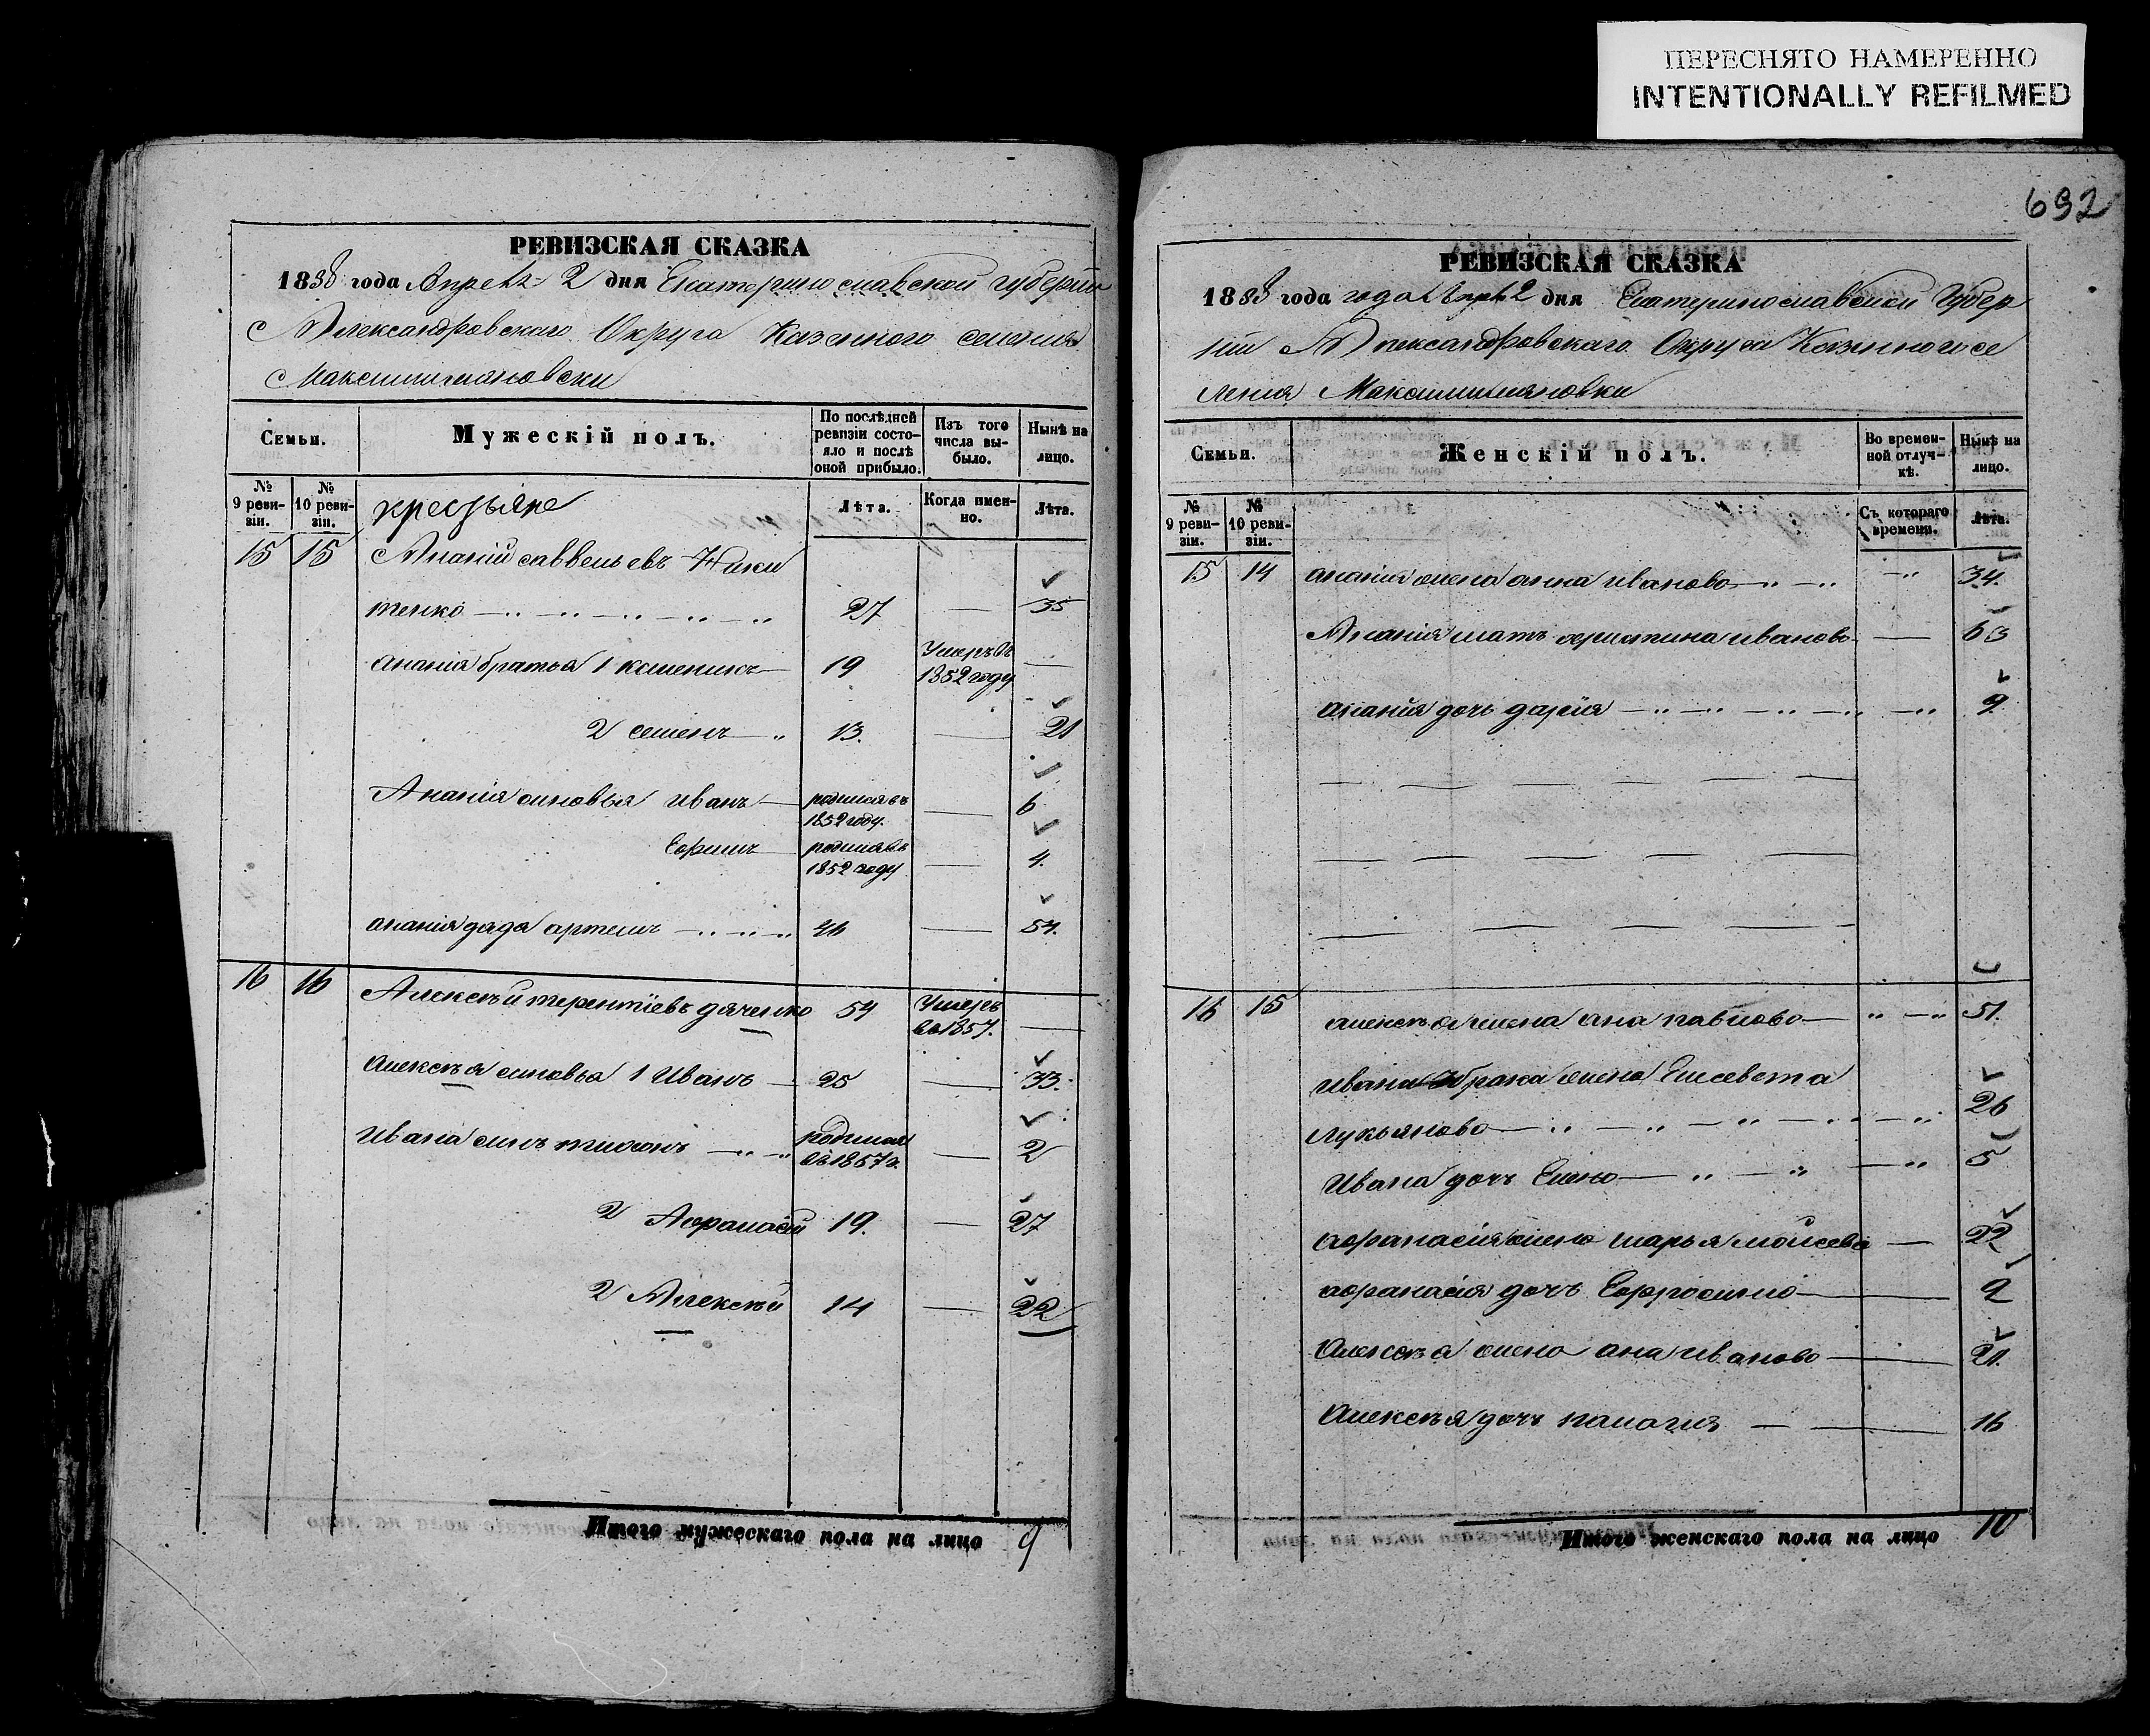 ПЕРЕСНЯТО НАМЕРЕННО
INTENTIONALLY REFILMED
692
РЕВИЗСКАЯ СКАЗКА
1858 года Апреля 2 дня Екатеринославской губернии
Александровскаго Округа Казенного селения
Максимилияновки
Семьи.
Мужескій полъ.
По послѣдней ревизіи состояло и послѣ оной прибыло.
Изъ того числа выбыло.
Нынѣ на лицо.
№ 9 ревизіи.
№ 10 ревизіи.
крестьяне
Лѣта.
Когда именно.
Лѣта.
15 15 Ананій савельевъ Ники
тенко 27 — 35
Ананія братья 1 19 Умеръ въ 1852 году —
2 семенъ 13. — 21
Анания синовья иванъ родился въ 1852 году. — 6
Ефимъ родился въ 1852 году — 4.
анания дядя артемъ 46 — 54.
16 16 Алексѣй терентіевъ дяченко 54 Умеръ въ 1857. —
Алексѣя синовья 1 Иванъ 25 — 33.
Ивана синъ тихонъ родился въ 1857 г. — 2
2 Афанасій 19. — 27
2 Алексѣй 14 — 22
Итого мужескаго пола на лицо 9
РЕВИЗСКАЯ СКАЗКА
1858 года года Апрѣ 2 дня Екатеринославской Губер
ніи Александровскаго Округа Казенного се
ления Максимилияновки
Семьи.
Женскій полъ.
Во временной отлучкѣ.
Нынѣ на лицо.
№ 9 ревизіи.
№ 10 ревизіи.
Съ котораго времени.
Лѣта.
15 14 анания жена анна иванова 34.
Анания мать христина иванова — 63
анания дочь дария 9.
16 15 алексѣя жена ана павлова 51.
ивана брака жена Елисевета
лукьянова 26
Ивана дочь Елена 5
афанасія жена марья моисева — 22
афанасія дочь Ефросиния 2
Алексѣя жена ана иванова 21.
Алексѣя дочь палагия — 16
Итого женскаго пола на лицо 10